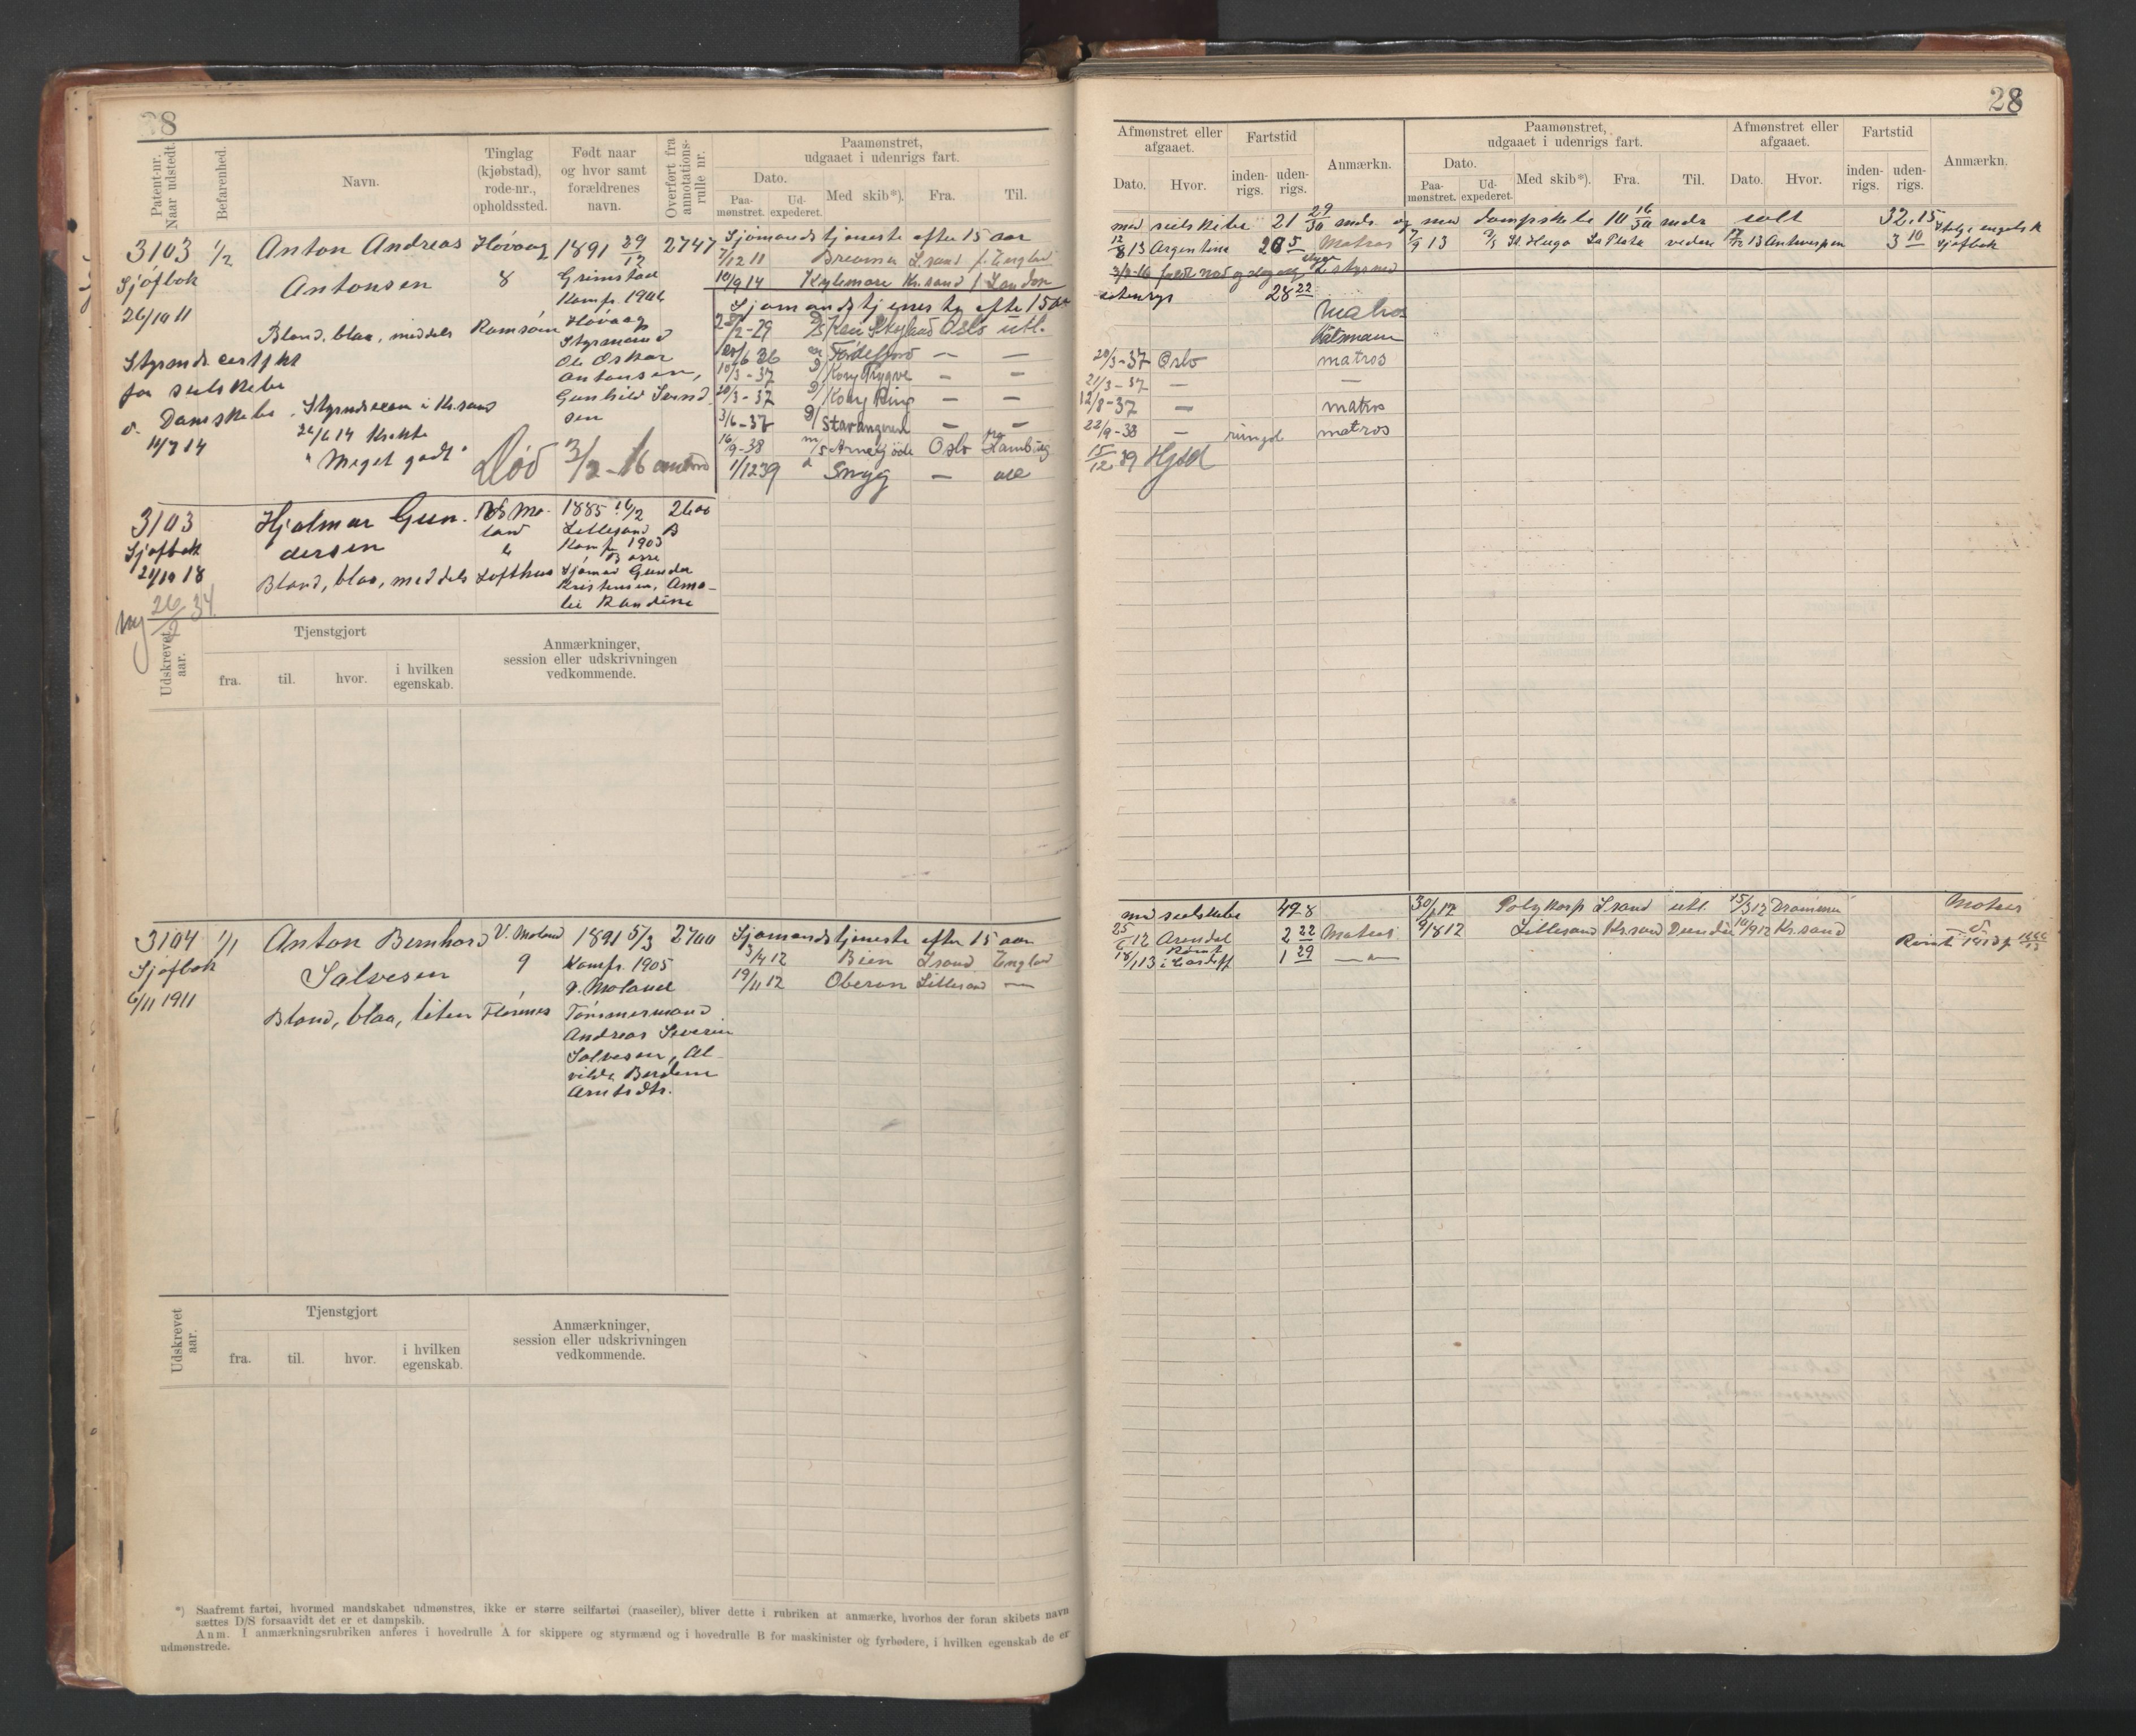 28
Patent-nr. Naar udstedt.
Befarenhed.
Navn.
Tinglag (kjøbstad), rode-nr., opholdssted.
Født naar og hvor samt forældrenes navn.
Overført fra annotations-rulle nr.
Paamønstret, udgaaet i udenrigs fart.
Dato.
Paa-mønstret.
Ud-expederet.
Med skib*).
Fra.
Til.
3103 1/2 Anton Andreas Høvaag 1891 29/12 2747
Sjøfbok Antonsen 8 Grimstad
26/10 11 Konf. 1906
Blond, blaa, middels Ramsøen Høvaag
Styrmand
Ole Oskar
Antonsen,
Gunhild Svend
sen
Styrmds certfkt
for seilskibe
o. Dampskibe
14/7 14
Styrmdsexam i Kr.sand
26/6 14
"Meget godt"
Død 3/2 - 16
Sjømandstjeneste efter 15 aar
7/12 11 Lsand f. England
10/9 14 Kylemore Kr.sand f London
Sjømandstjeneste efter 15 aar
2-29 Oslo utl.
6 36 Førdefjord — —
10/3-37 Kong Trygve — —
20/3-37 Kong Ring — —
3/6-37 Stavangeren — —
16/9-38 m/s Oslo
1/12 39 Snyg —
3103 Hjalmar Gun- 1885 16/2 2600
Sjøfbok dersen land Lillesand B
21/10 18 Konf. 1903
Blond, blaa, middels Lofthus Sjømd Gunder
Kristensen, Ama-
lie Randine
Ny 26/2 34
Udskrevet aar.
Tjenstgjort
fra.
til.
hvor.
i hvilken egenskab.
Anmærkninger, session eller udskrivningen vedkommende.
3104 1/1 Anton Bernhard V. Moland 1891 5/3 2700
Sjøfbok Salvesen 9 Konfr. 1905
6/11 1911 V. Moland
Blond, blaa, liten Flørenes Tømmermand
Andreas Severin
Salvesen, Al-
vilde Berdine
Arntsdtr.
Sjømandstjeneste efter 15 aar
3/4 12 Lsand England
19/11 12 Oberon Lillesand —
Udskrevet aar.
Tjenstgjort
fra.
til.
hvor.
i hvilken egenskab.
Anmærkninger, session eller udskrivningen vedkommende.
*) Saafremt fartøi, hvormed mandskabet udmønstres, ikke er større seilfartøi (raaseiler), bliver dette i rubriken at anmærke, hvorhos der foran skibets navn
sættes D/S forsaavidt det er et dampskib.
Anm. I anmærkningsrubriken anføres i hovedrulle A for skippere og styrmænd og i hovedrulle B for maskinister og fyrbødere, i hvilken egenskab de er
udmønstrede.
28
Afmønstret eller afgaaet.
Fartstid
Anmærkn.
Paamønstret, udgaaet i udenrigs fart.
Afmønstret eller afgaaet.
Fartstid
Anmærkn.
Dato.
Hvor.
inden-rigs.
uden-rigs.
Dato.
Paa-mønstret.
Ud-expederet.
Med skib*).
Fra.
Til.
Dato.
Hvor.
inden-rigs.
uden-rigs.
med seilskibe 21 29/30 mdr. og med dampskibe 10 16/30 mdr ialt 32.15
12/8 13 Argentina 20 5 Matros 7/9 13 La Plata videre 17/12 13 Antwerpen 3 10 Sjøfbok
28 22
Matros
Båtsmann
20/3-37 Oslo matros
21/3-37 — —
12/8-37 — matros
22/9-38 — matros
15/12 39
med seilskibe 49.8 30/1 12 Polykarp Lsand utl. 15/3 12 Drammen Matros
25/6 12 Arendal 2 22 Matros 9/8 12 Lillesand Kr.sand Dundee 14/9 12 Kr.sand
18/1 13 Rømt i Cardiff 1 29 —